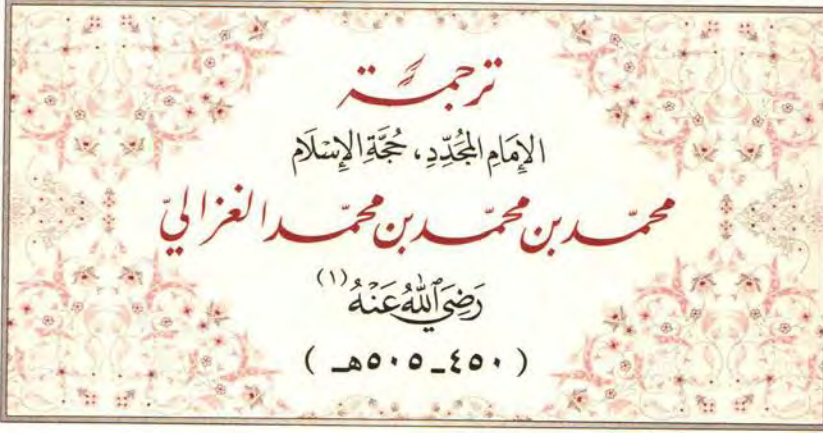 ترجمة
الإِمَامِ المُجَدِّدِ، حُجَّةِ الإِسْلَام
محمّد بن محمّد بن محمّد الغزاليّ
رَضِيَ ٱللهُ عَنْهُ (١)
(٤٥٠ ـ ٥٠٥ هـ)